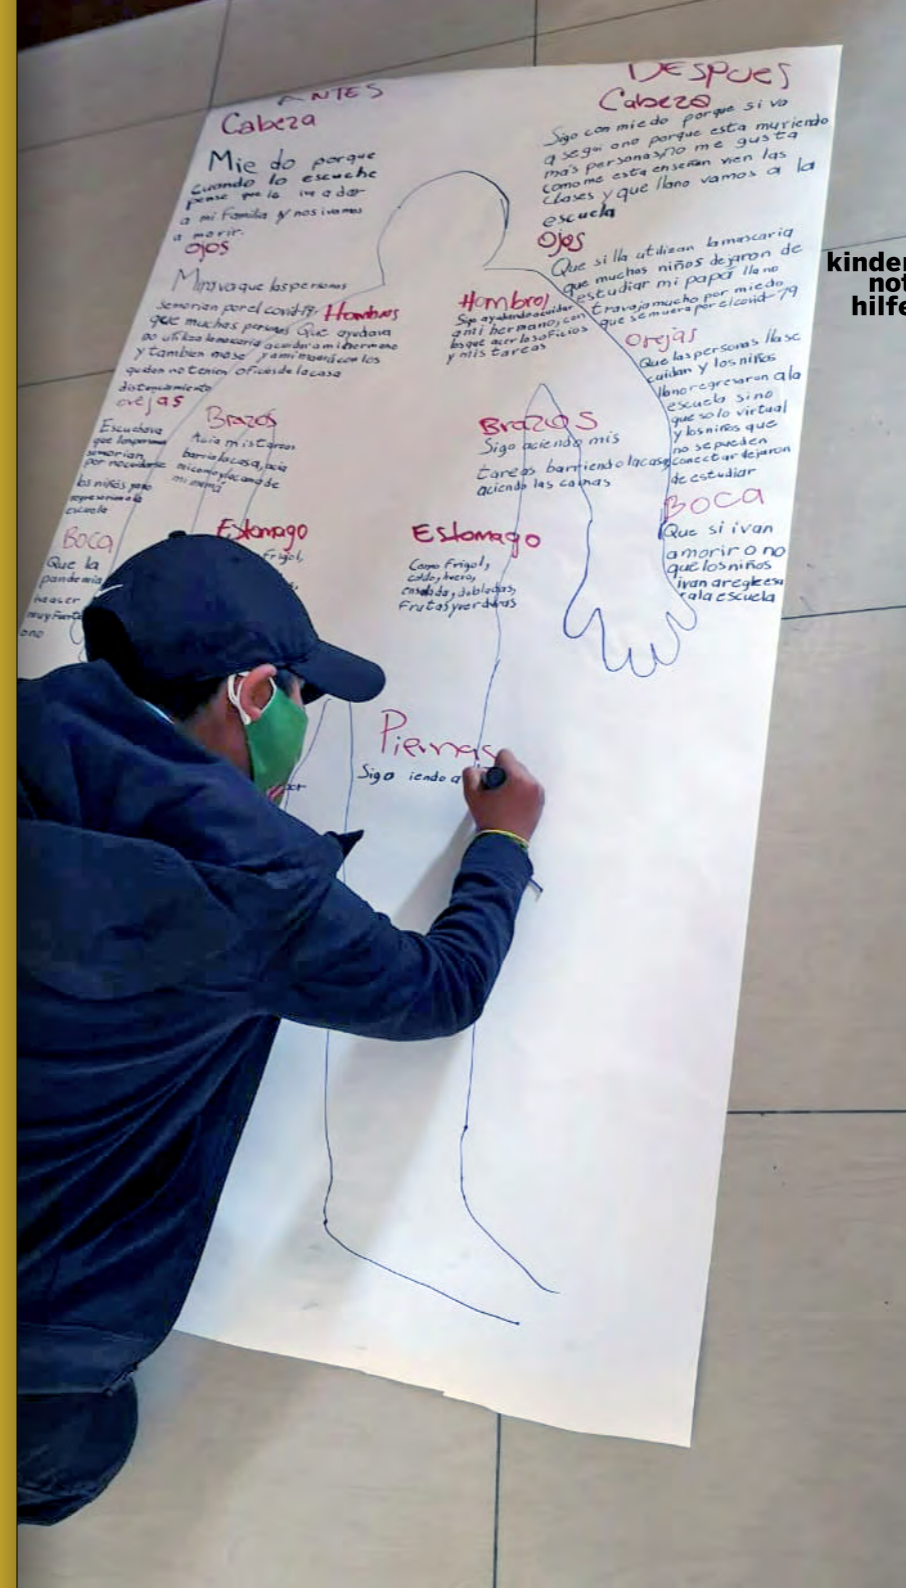 ANTES
Cabeza
Mie do porque
cuando lo escuche
pense que le iva a dar
a mi Familia y nos ivamos
a morir.
Ojos
Mirava que las personas
se morian por el covid-19
que muchas personas
no utiliza la mascaria
y tambien
quedan no tenien
distanciamiento
Hombros
Que ayudava
a cuidar a mi hermano
y a mi mamá con los
oficios de la casa
orejas
Escuchava
que las personas
se morian
por no cuidarse
los niños
regresarian a la
escuela
Brazos
Acia mis tareas
barria la casa, acia
mi cama y la cama de
mi mamá
BOCA
Que la
pandemia
hacer
muy fuerte
o no
Estomago
Frigol,
DESPUES
Cabeza
Sigo con miedo porque si va
a segui o no porque esta muriendo
mas personas, no me gusta
como me esta enseñan vien las
clases y que llano vamos a la
escuela
Ojos
Que si lla utilizan la mascaria
que muchos niños dejaron de
estudiar mi papá lla no
travaja mucho por miedo
que se muera por el covid-79
Hombros
Sigo ayudando a cuidar
a mi hermano, con
los que acer los oficios
y mis tareas
Orejas
Que las personas lla se
cuidan y los niños
llano regresaron a la
escuela sino
que solo virtual
y los niños que
no se pueden
conectar dejaron
de estudiar
Brazos
Sigo aciendo mis
tareas barriendo la casa,
aciendo las camas
BOCA
Que si ivan
a morir o no
que los niños
ivan a regresa
a la escuela
Estomago
Como Frigol,
caldo, huevo,
ensalada, dobladas,
Frutas y verduras
Piernas
Sigo iendo a
kinder
not
hilfe